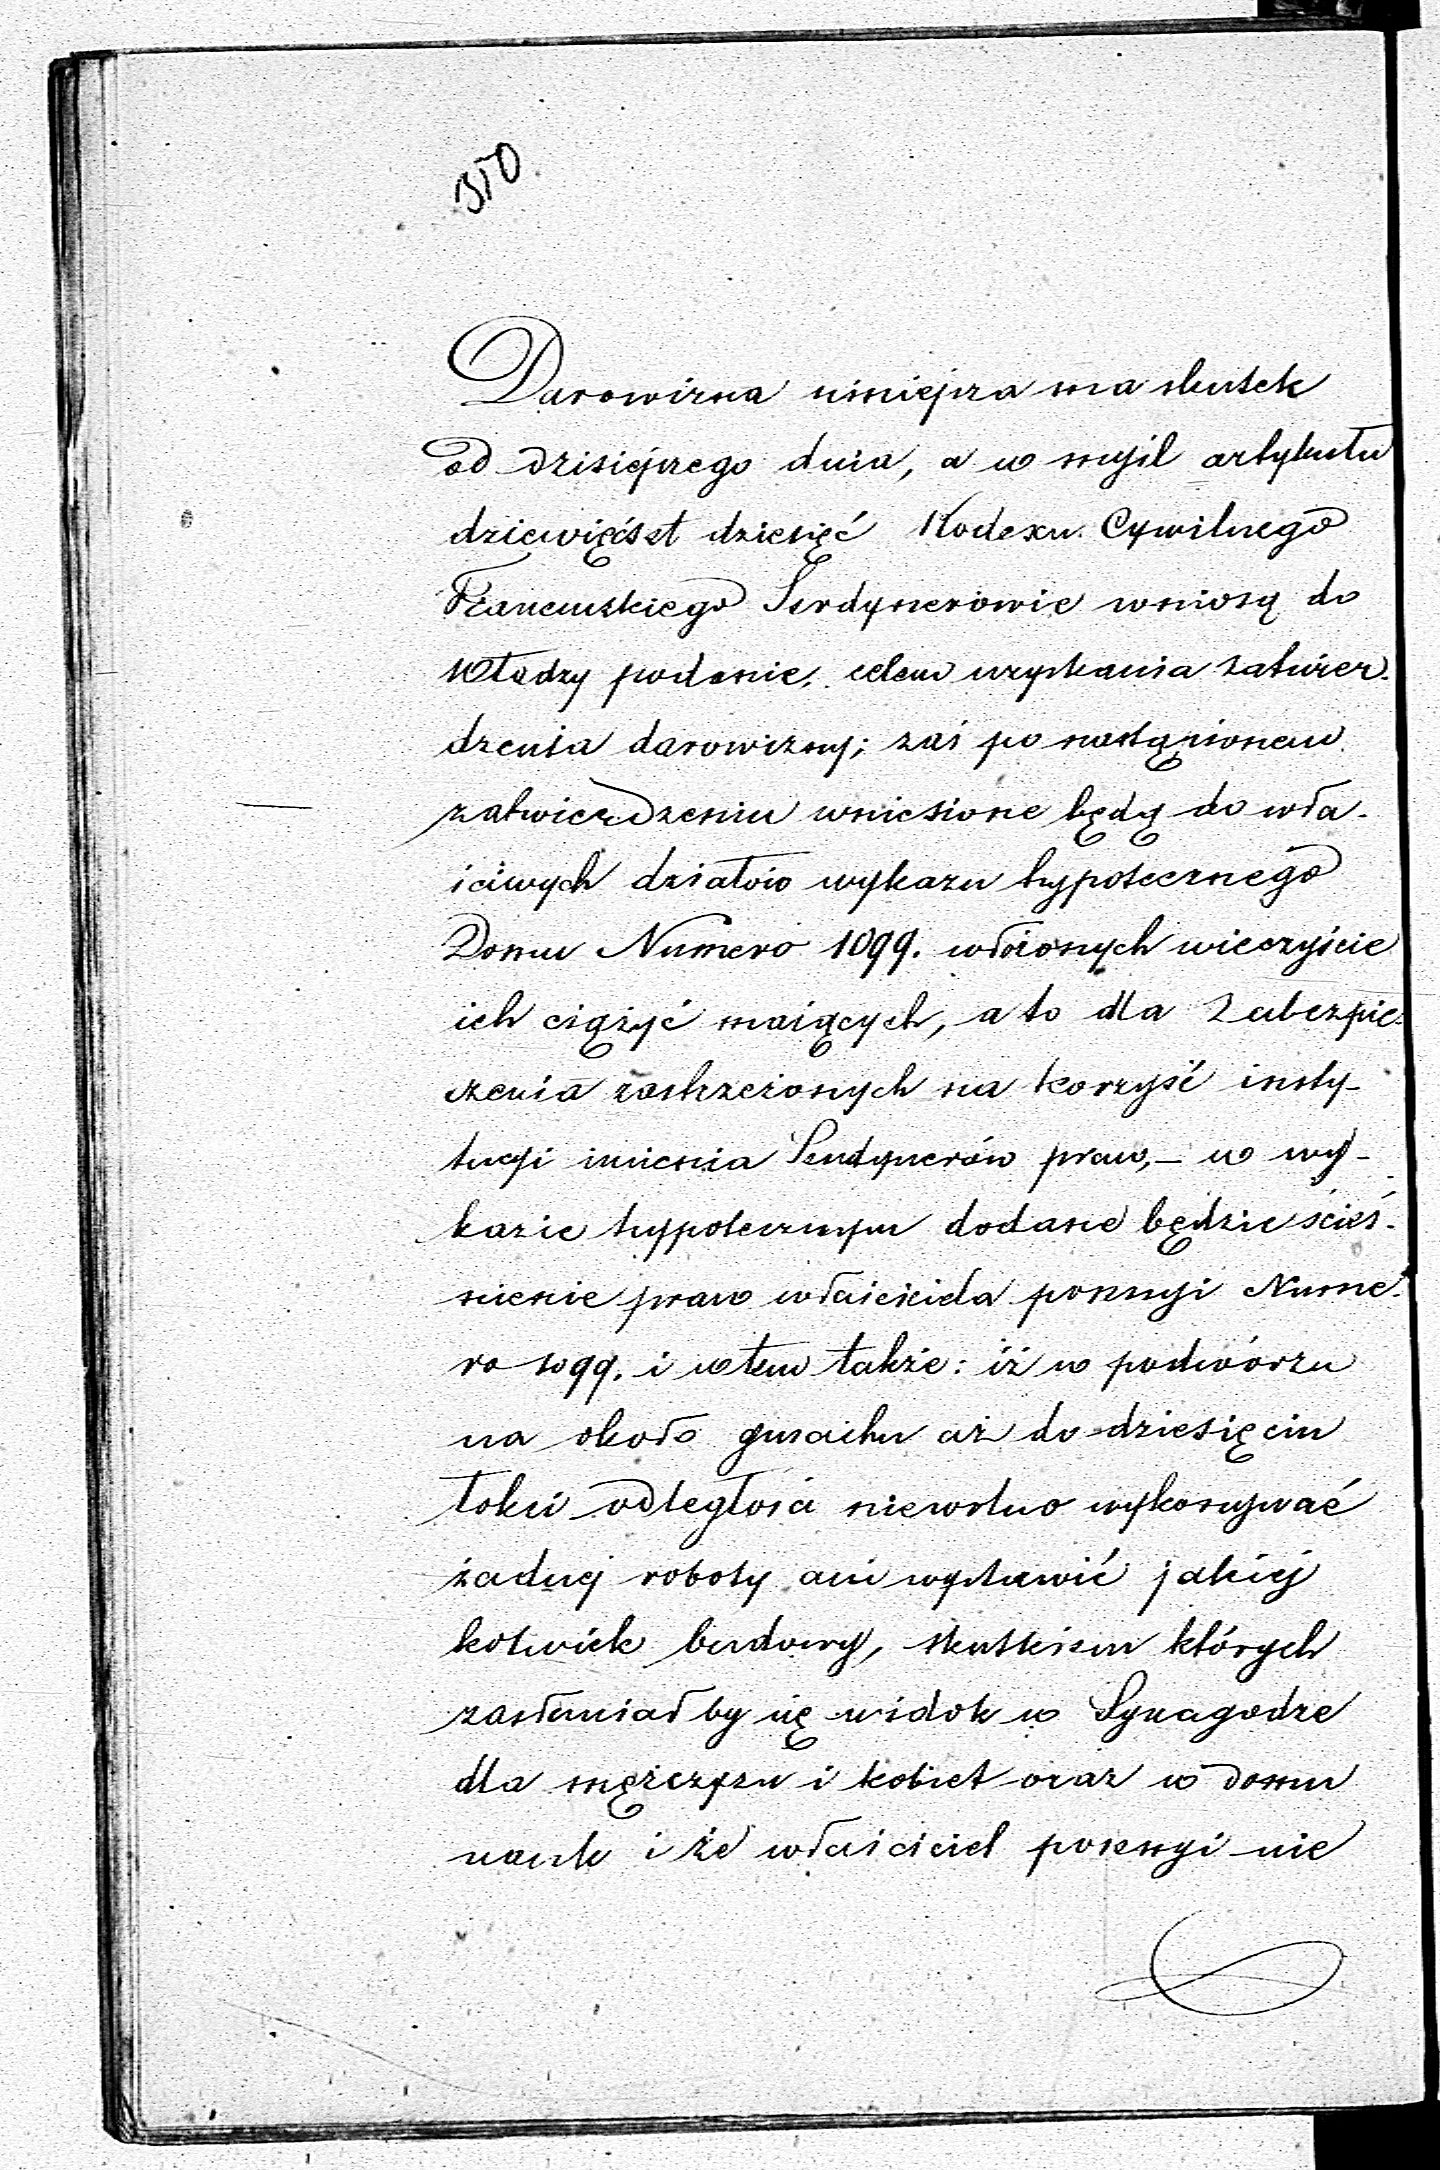 350
Darowizna niniejsza ma skutek
od dzisiejszego dnia, a w myśl artykułu
dziewięćset dziesięć Kodexu Cywilnego
Francuzkiego Serdynerowie wniosą do
Władzy podanie, celem uzyskania zatwier-
dzenia darowizny; zaś po nastąpionem
zatwierdzeniu wniesione będą do wła-
ściwych działów wykazu hypotecznego
Domu Numero 1099. włożonych wieczyście
ich ciążyć maiących, a to dla zabezpie-
czenia zastrzeżonych na korzyść insty-
tucyi imienia Serdynerów praw, – w wy-
kazie hypotecznym dodane będzie ścieś-
nienie praw właściciela possesyi Nume-
ro 1099. i w tem także: iż w podwórzu
na około gmachu aż do dziesięciu
łokci odległości niewolno wykonywać
żadnej roboty ani wystawić jakiej
kolwiek budowy, skutkiem których
zasłaniałby się widok w Synagodze
dla mężczyzn i kobiet oraz w domu
nauk i że właściciel possesyi nie